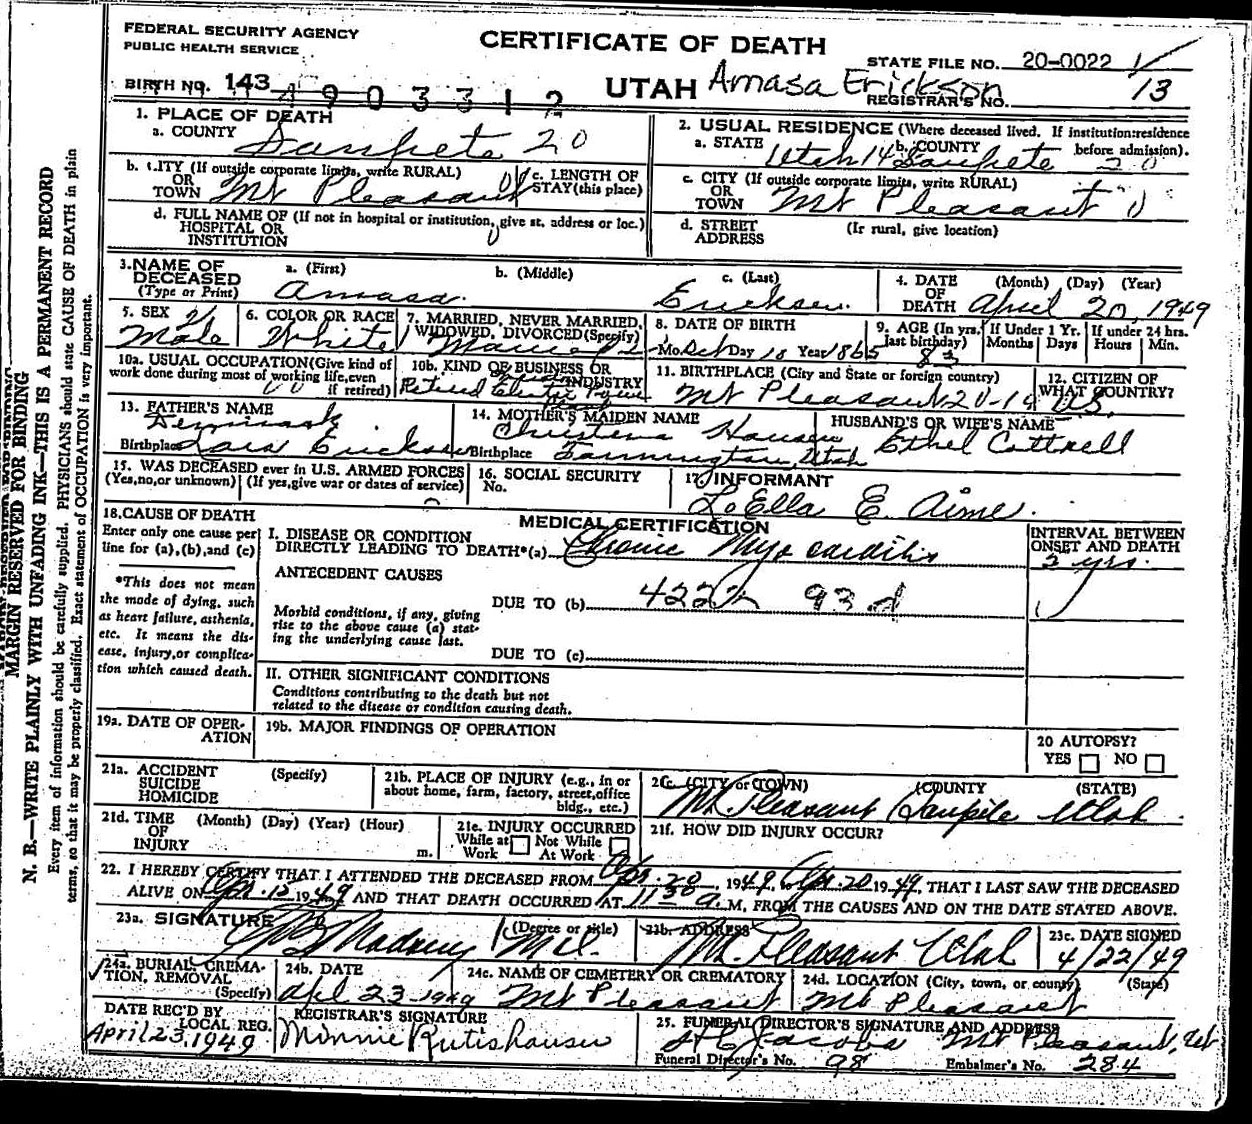 FEDERAL SECURITY AGENCY
PUBLIC HEALTH SERVICE
CERTIFICATE OF DEATH
STATE FILE NO. 20-0022 1/
BIRTH NO. 143 4903312
UTAH Amasa Erickson
REGISTRAR'S NO. 13
1. PLACE OF DEATH
a. COUNTY Sanpete 20
2. USUAL RESIDENCE (Where deceased lived. If institution:residence before admission).
a. STATE Utah 14 b. COUNTY Sanpete 20
b. CITY (If outside corporate limits, write RURAL) OR TOWN Mt Pleasant
c. LENGTH OF STAY (this place)
c. CITY (If outside corporate limits, write RURAL) OR TOWN Mt Pleasant 0
d. FULL NAME OF (If not in hospital or institution, give st. address or loc.) HOSPITAL OR INSTITUTION
d. STREET ADDRESS (If rural, give location)
3. NAME OF DECEASED (Type or Print)
a. (First) Amasa
b. (Middle)
c. (Last) Ericksen
4. DATE OF DEATH (Month) (Day) (Year) April 20, 1949
5. SEX Male
6. COLOR OR RACE White
7. MARRIED, NEVER MARRIED, WIDOWED, DIVORCED(Specify) Married 2
8. DATE OF BIRTH Mo. Oct Day 18 Year 1865
9. AGE (In yrs. last birthday) 83
If Under 1 Yr. Months Days
If under 24 hrs. Hours Min.
10a. USUAL OCCUPATION(Give kind of work done during most of working life,even if retired)
10b. KIND OF BUSINESS OR INDUSTRY Retired Electric Power
11. BIRTHPLACE (City and State or foreign country) Mt Pleasant 20-14
12. CITIZEN OF WHAT COUNTRY? US.
13. FATHER'S NAME Lars Ericksen
Birthplace Denmark
14. MOTHER'S MAIDEN NAME Christena Hansen
Birthplace Farmington, Utah
HUSBAND'S OR WIFE'S NAME Ethel Cottrell
15. WAS DECEASED ever in U.S. ARMED FORCES (Yes,no,or unknown) (If yes,give war or dates of service)
16. SOCIAL SECURITY No.
17. INFORMANT LoElla E. Aime.
18.CAUSE OF DEATH
Enter only one cause per line for (a),(b),and (c)
*This does not mean the mode of dying, such as heart failure, asthenia, etc. It means the disease, injury,or complication which caused death.
MEDICAL CERTIFICATION
I. DISEASE OR CONDITION DIRECTLY LEADING TO DEATH*(a) Chronic Myocarditis
INTERVAL BETWEEN ONSET AND DEATH yrs.
ANTECEDENT CAUSES
DUE TO (b) 4222 93d
Morbid conditions, if any, giving rise to the above cause (a) stating the underlying cause last.
DUE TO (c)
II. OTHER SIGNIFICANT CONDITIONS
Conditions contributing to the death but not related to the disease or condition causing death.
19a. DATE OF OPERATION
19b. MAJOR FINDINGS OF OPERATION
20 AUTOPSY?
YES NO
21a. ACCIDENT SUICIDE HOMICIDE (Specify)
21b. PLACE OF INJURY (e.g., in or about home, farm, factory, street,office bldg., etc.)
21c. (CITY or TOWN) (COUNTY) (STATE)
Mt. Pleasant Sanpete Utah
21d. TIME OF INJURY (Month) (Day) (Year) (Hour) m.
21e. INJURY OCCURRED While at Work Not While At Work
21f. HOW DID INJURY OCCUR?
22. I HEREBY CERTIFY THAT I ATTENDED THE DECEASED FROM 1949, to Apr. 20 1949, THAT I LAST SAW THE DECEASED
ALIVE ON Apr. 1949 AND THAT DEATH OCCURRED AT a. M, FROM THE CAUSES AND ON THE DATE STATED ABOVE.
23a. SIGNATURE (Degree or title) M.D.
23b. ADDRESS Mt. Pleasant Utah
23c. DATE SIGNED 4/22/49
24a. BURIAL, CREMATION, REMOVAL (Specify)
24b. DATE Apl 23 1949
24c. NAME OF CEMETERY OR CREMATORY Mt Pleasant
24d. LOCATION (City, town, or county) (State) Mt Pleasant
DATE REC'D BY LOCAL REG. April 23, 1949
REGISTRAR'S SIGNATURE Minnie Rutishauser
25. FUNERAL DIRECTOR'S SIGNATURE AND ADDRESS Jacobs Mt Pleasant, Ut
Funeral Director's No. 98
Embalmer's No. 284
MARGIN RESERVED FOR BINDING
N. B.—WRITE PLAINLY WITH UNFADING INK—THIS IS A PERMANENT RECORD
Every item of information should be carefully supplied. PHYSICIANS should state CAUSE OF DEATH in plain
terms, so that it may be properly classified. Exact statement of OCCUPATION is very important.